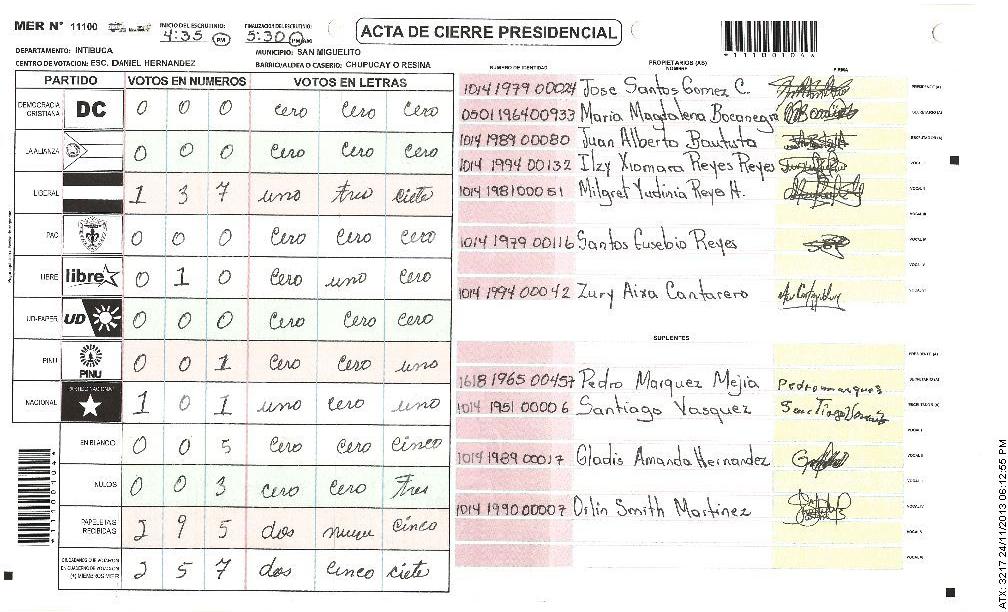 MER N° 11100
INICIO DEL ESCRUTINIO: 4:35 PM
FINALIZACION DEL ESCRUTINIO: 5:30 PM
ACTA DE CIERRE PRESIDENCIAL
*11100104*
DEPARTAMENTO: INTIBUCA
MUNICIPIO: SAN MIGUELITO
CENTRO DE VOTACION: ESC. DANIEL HERNANDEZ
BARRIO/ALDEA O CASERIO: CHUPUCAY O RESINA
PARTIDO VOTOS EN NUMEROS VOTOS EN LETRAS
DEMOCRACIA CRISTIANA DC 0 0 0 cero cero cero
LA ALIANZA 0 0 0 cero cero cero
LIBERAL 1 3 7 uno tres ciete
PAC 0 0 0 cero cero cero
LIBRE libre 0 1 0 cero uno cero
UD-FAPER UD 0 0 0 cero cero cero
PINU PINU 0 0 1 cero cero uno
NACIONAL 1 0 1 uno cero uno
EN BLANCO 0 0 5 cero cero cinco
NULOS 0 0 3 cero cero tres
PAPELETAS RECIBIDAS 2 9 5 dos nueve cinco
CIUDADANOS QUE VOTARON EN CUADERNO DE VOTACION (+) MIEMBROS MER 2 5 7 dos cinco ciete
*11100104*
NUMERO DE IDENTIDAD
PROPIETARIOS (AS)
NOMBRE
FIRMA
1014 1979 00024 Jose Santos Gomez C. PRESIDENTE (A)
0501 1964 00933 Maria Magdalena Bocanegra SECRETARIO (A)
1014 1989 00080 Juan Alberto Bautista ESCRUTADOR (A)
1014 1994 00132 Ilzy Xiomara Reyes Reyes VOCAL I
1014 1981 00051 Milgret Yudinia Reyes H. VOCAL II
VOCAL III
1014 1979 00116 Santos Eusebio Reyes VOCAL IV
VOCAL V
1014 1994 00042 Zury Aixa Cantarero
SUPLENTES
PRESIDENTE (A)
1618 1965 00457 Pedro Marquez Mejia Pedro marques
1014 1951 00006 Santiago Vasquez ESCRUTADOR (A)
VOCAL I
1014 1989 00017 Gladis Amanda Hernandez VOCAL II
1014 1990 00007 Orlin Smith Martinez VOCAL IV
VOCAL V
ATX: 3217 24/11/2013 06:12:55 PM